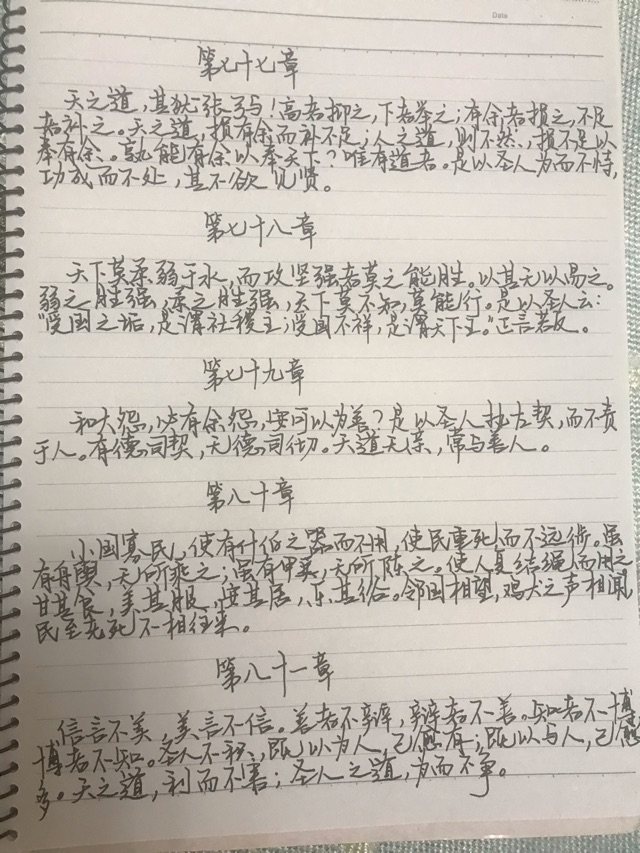 Date
第七十七章
天之道,其犹张弓与!高者抑之,下者举之;有余者损之,不足
者补之。天之道,损有余而补不足;人之道,则不然,损不足以
奉有余。孰能有余以奉天下?唯有道者。是以圣人为而不恃,
功成而不处,其不欲见贤。
第七十八章
天下莫柔弱于水,而攻坚强者莫之能胜。以其无以易之。
弱之胜强,柔之胜强,天下莫不知,莫能行。是以圣人云:
“受国之垢,是谓社稷主;受国不祥,是谓天下王。”正言若反。
第七十九章
和大怨,必有余怨,安可以为善?是以圣人执左契,而不责
于人。有德司契,无德司彻。天道无亲,常与善人。
第八十章
小国寡民,使有什伯之器而不用,使民重死而不远徙。虽
有舟舆,无所乘之;虽有甲兵,无所陈之。使人复结绳而用之
甘其食,美其服,安其居,乐其俗。邻国相望,鸡犬之声相闻,
民至老死不相往来。
第八十一章
信言不美,美言不信。善者不辩,辩者不善。知者不博
博者不知。圣人不积,既以为人,己愈有;既以与人,己愈
多。天之道,利而不害;圣人之道,为而不争。